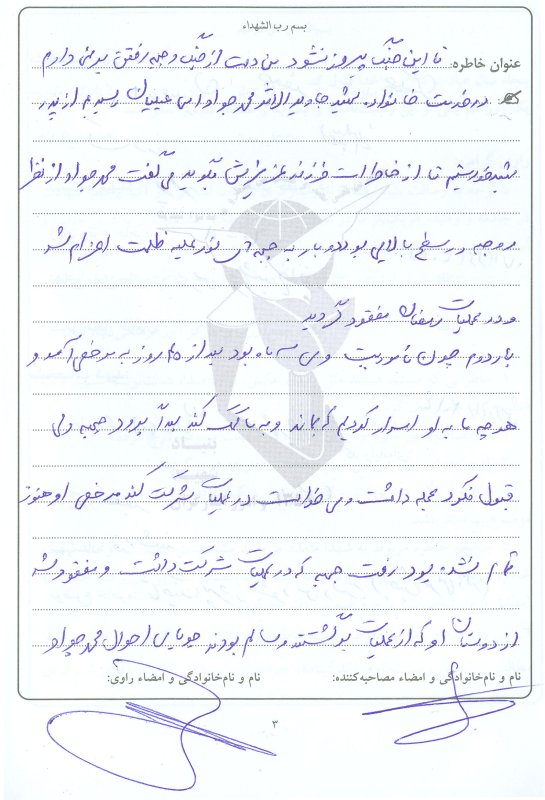 بسم رب الشهداء
عنوان خاطره: تا این جنگ پیروز نشود من دست از جنگ و جبهه رفتن بر نمی دارم
در خدمت خانواده شهید جاوید الاثر محمد جواد امی رسیدیم از پدر
شهید خواستیم تا از خاطرات فرزند عزیزش بگوید می گفت محمد جواد از نظر
روحیه در سطح بالایی بود دو بار به جبهه ی نور علیه ظلمت اعزام شد
و در عملیات رمضان مفقود گردید
بار دوم چون مأموریت وی سه ماه بود بعد از ۴۵ روز به مرخصی آمد و
هر چه ما به او اسرار کردیم که بماند و به ما کمک کند بعداً برود جبهه ولی
قبول نکرد عجله داشت و می خواست در عملیات شرکت کند مرخصی او هنوز
تمام نشده بود رفت جبهه که در عملیات شرکت داشت و مفقود شد
از دوستان او که از عملیات برگشتند و سالم بودند جویای احوال محمد جواد
نام و نام‌خانوادگی و امضاء مصاحبه‌کننده: نام و نام‌خانوادگی و امضاء راوی:
۳